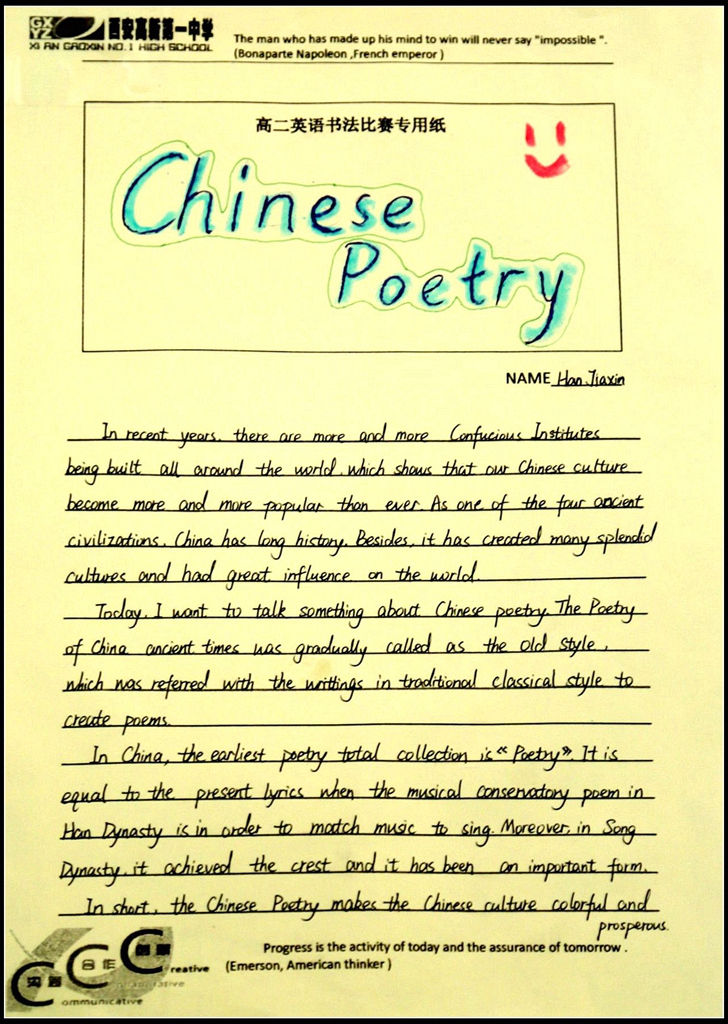 GX
YZ 西安高新第一中学
XI AN GAOXIN NO.1 HIGH SCHOOL
The man who has made up his mind to win will never say "impossible ".
(Bonaparte Napoleon ,French emperor )
高二英语书法比赛专用纸
Chinese
Poetry
NAME Han Jiaxin
In recent years, there are more and more Confucious Institutes
being built all around the world, which shows that our Chinese culture
become more and more popular than ever. As one of the four ancient
civilizations, China has long history. Besides, it has created many splendid
cultures and had great influence on the world.
Today, I want to talk something about Chinese poetry. The Poetry
of China ancient times was gradually called as the old style,
which was referred with the writtings in traditional classical style to
create poems.
In China, the earliest poetry total collection is «Poetry». It is
equal to the present lyrics when the musical conservatory poem in
Han Dynasty is in order to match music to sing. Moreover, in Song
Dynasty, it achieved the crest and it has been an important form.
In short, the Chinese Poetry makes the Chinese culture colorful and
prosperous.
Progress is the activity of today and the assurance of tomorrow .
(Emerson, American thinker )
C reative
C 合作
C ommunicative